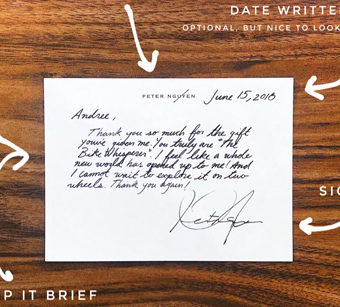 DATE WRITTE
OPTIONAL, BUT NICE TO LOOK
PETER NGUYEN
June 15, 2018
Andree,
Thank you so much for the gift
you've given me. You truly are "The
Bike Whisperer". I feel like a whole
new world has opened up to me! And
I cannot wait to explore it on two
wheels. Thank you again!
SIG
P IT BRIEF